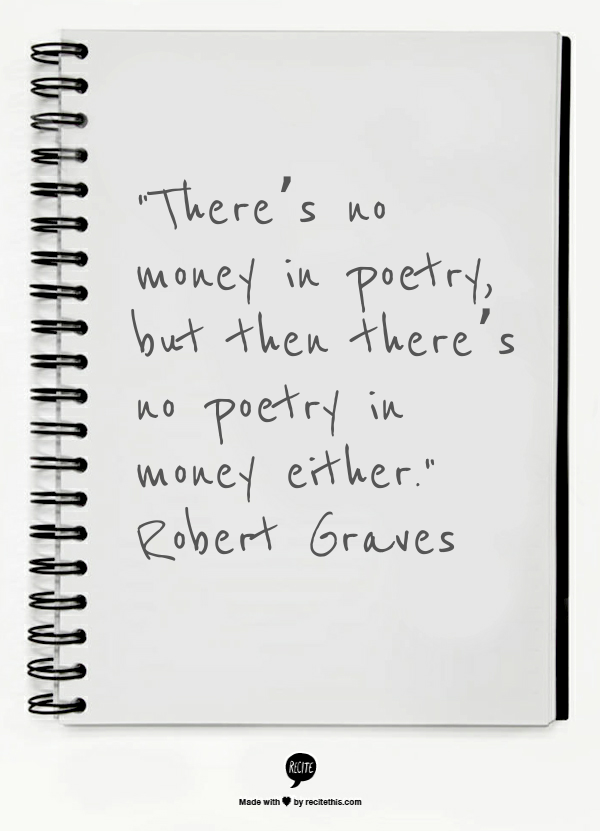 "There's no
money in poetry,
but then there's
no poetry in
money either."
Robert Graves
RECITE
Made with ♥ by recitethis.com